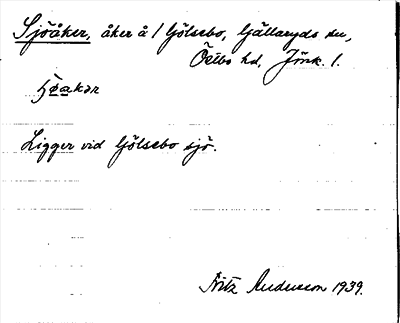 Sjöåker, åker å 1 Gölsebo, Gällaryds sn,
Östbo hd, Jönk. l.
ʃö̀akər
Ligger vid Gölsebo sjö.
Fritz Anderson 1939.